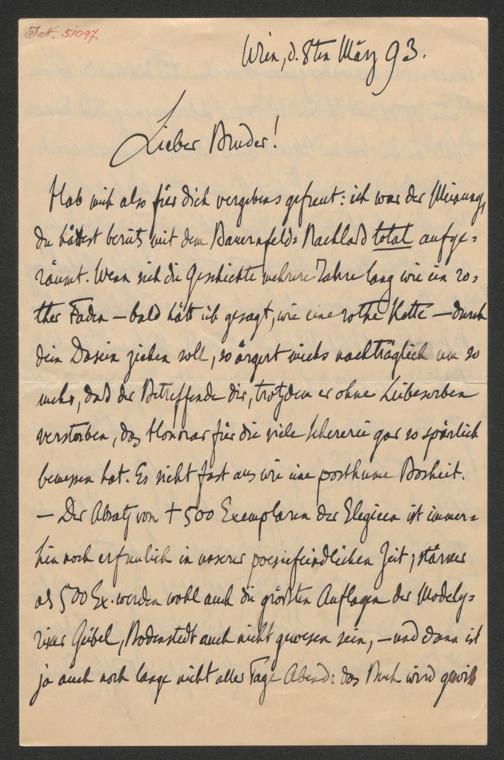 J.N. 51097.
Wien, d. 8ten März 93.
Lieber Bruder!
Hab mich also für dich vergebens gefreut: ich war der Meinung,
du hättest bereits mit dem Bauernfelds Nachlaß total aufge=
räumt. Wenn sich die Geschichte mehrere Jahre lang wie ein ro=
ther Faden – bald hätt ich gesagt, wie eine rothe Kette – durch
dein Dasein ziehen soll, so ärgert michs nachträglich um so
mehr, daß der Betreffende dir, trotzdem er ohne Leibeserben
verstorben, das Honorar für die viele Schererei gar so spärlich
bemessen hat. Es sieht fast aus wie eine posthume Bosheit.
– Der Absatz von + 500 Exemplaren der Elegieen ist immer=
hin noch erfreulich in unserer poesiefeindlichen Zeit; stärker
als 500 Ex. werden wohl auch die größten Auflagen der Modely=
riker Geibel, Bodenstedt auch nicht gewesen sein, – und dann ist
ja auch noch lange nicht aller Tage Abend: das Buch wird gewiß